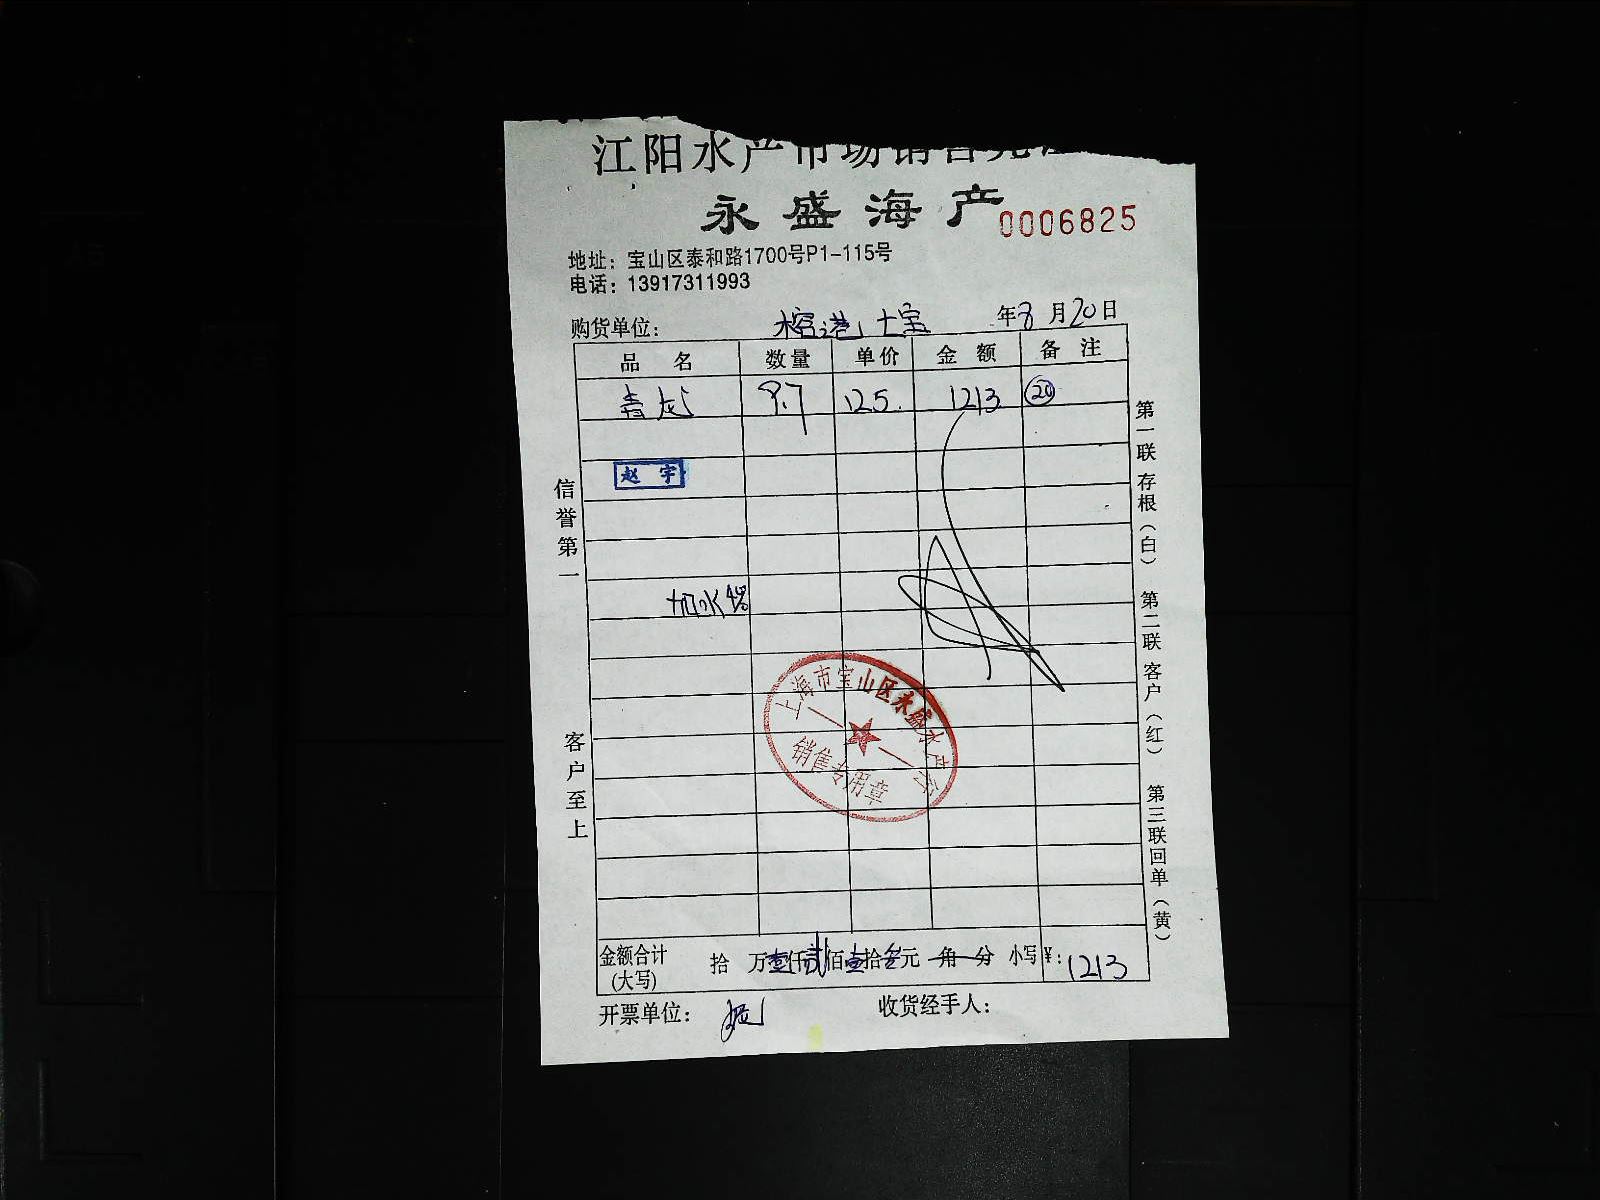 江阳水产市场销售凭证
永盛海产
0006825
地址：宝山区泰和路1700号P1-115号
电话：13917311993
购货单位： 榕港 年8月20日
品 名 数量 单价 金 额 备 注
青龙 9.7 125. 1213 20
赵宇
加水4%
上海市宝山区永盛水产
销售专用章
信誉第一
客户至上
第一联 存根（白） 第二联 客户（红） 第三联 回单（黄）
金额合计 拾 万壹仟贰佰壹拾叁元 角 分 小写¥：1213
(大写)
开票单位： 收货经手人：